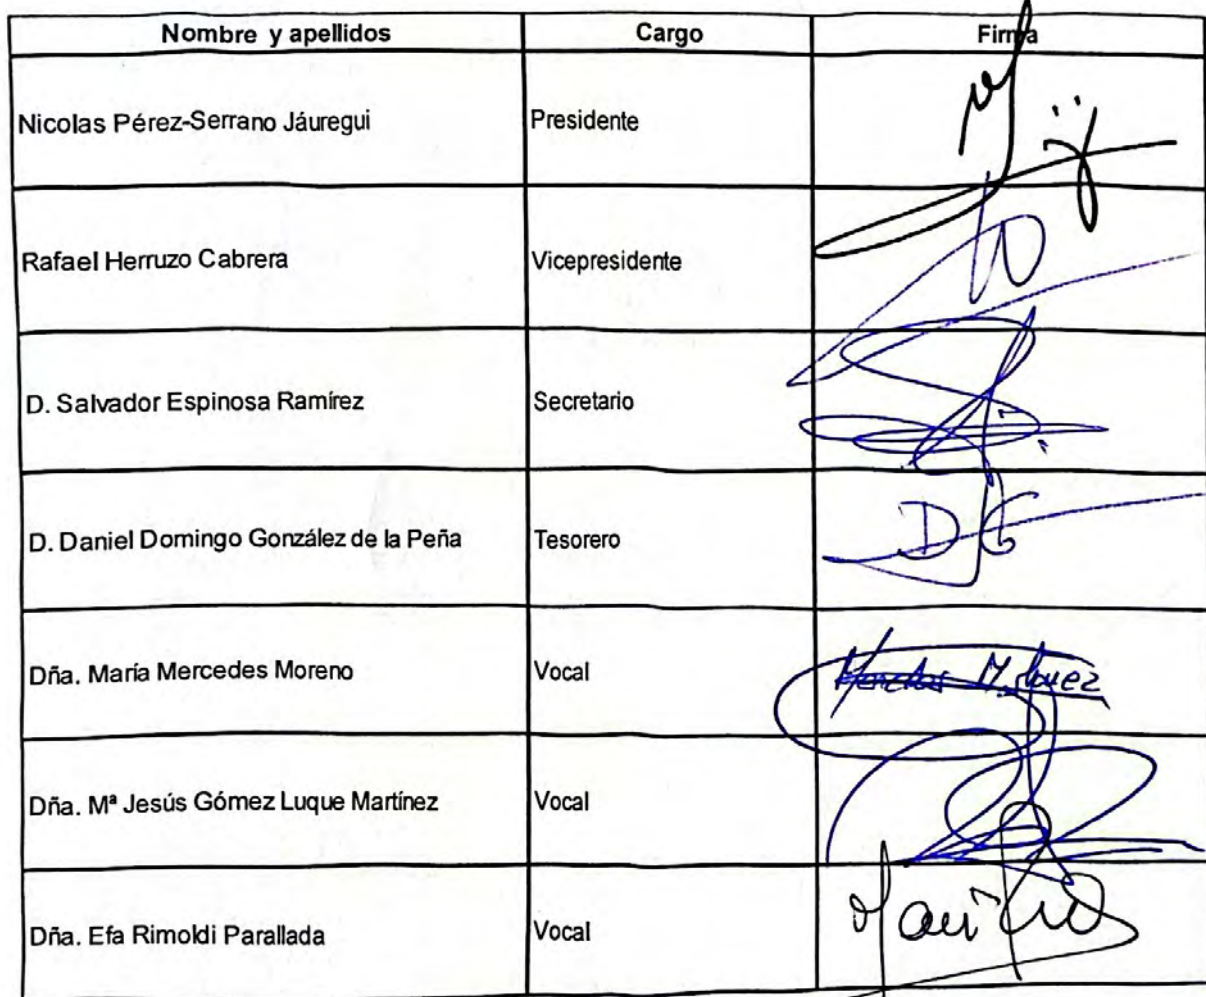 Nombre y apellidos Cargo Firma
Nicolas Pérez-Serrano Jáuregui Presidente
Rafael Herruzo Cabrera Vicepresidente
D. Salvador Espinosa Ramírez Secretario
D. Daniel Domingo González de la Peña Tesorero
Dña. María Mercedes Moreno Vocal
Dña. Mª Jesús Gómez Luque Martínez Vocal
Dña. Efa Rimoldi Parallada Vocal